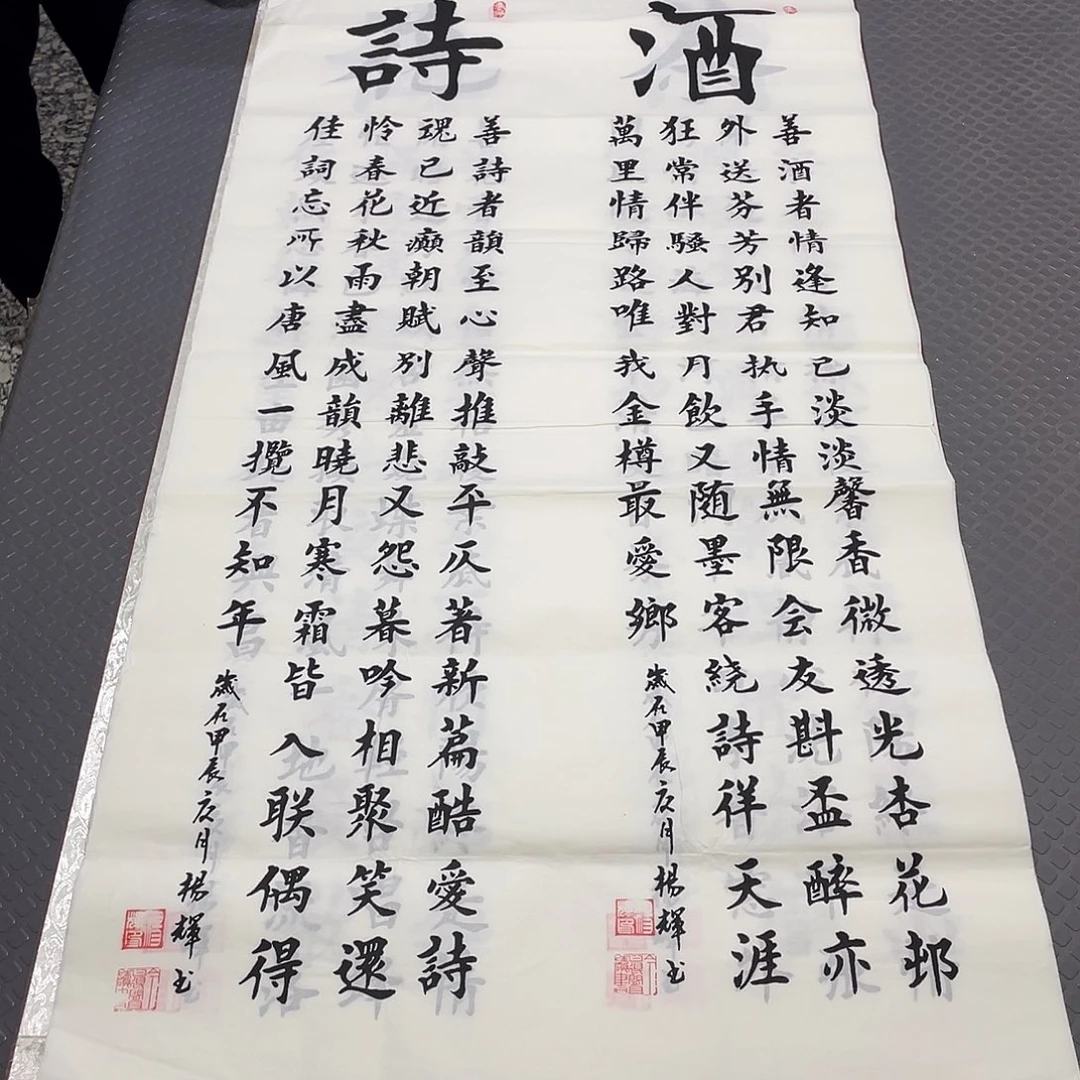 酒
善酒者情逢知己淡淡馨香微透光杏花邨
外送芬芳别君执手情無限会友斟盃醉亦
狂常伴騷人對月飲又随墨客繞詩徉天涯
萬里情歸路唯我金樽最愛鄉
歲在甲辰庚月楊輝书
詩
善詩者韻至心聲推敲平仄著新篇酷愛詩
魂已近癫朝賦别離悲又怨暮吟相聚笑還
怜春花秋雨盡成韻曉月寒霜皆入联偶得
佳詞忘所以唐風一攬不知年
歲在甲辰庚月楊輝书